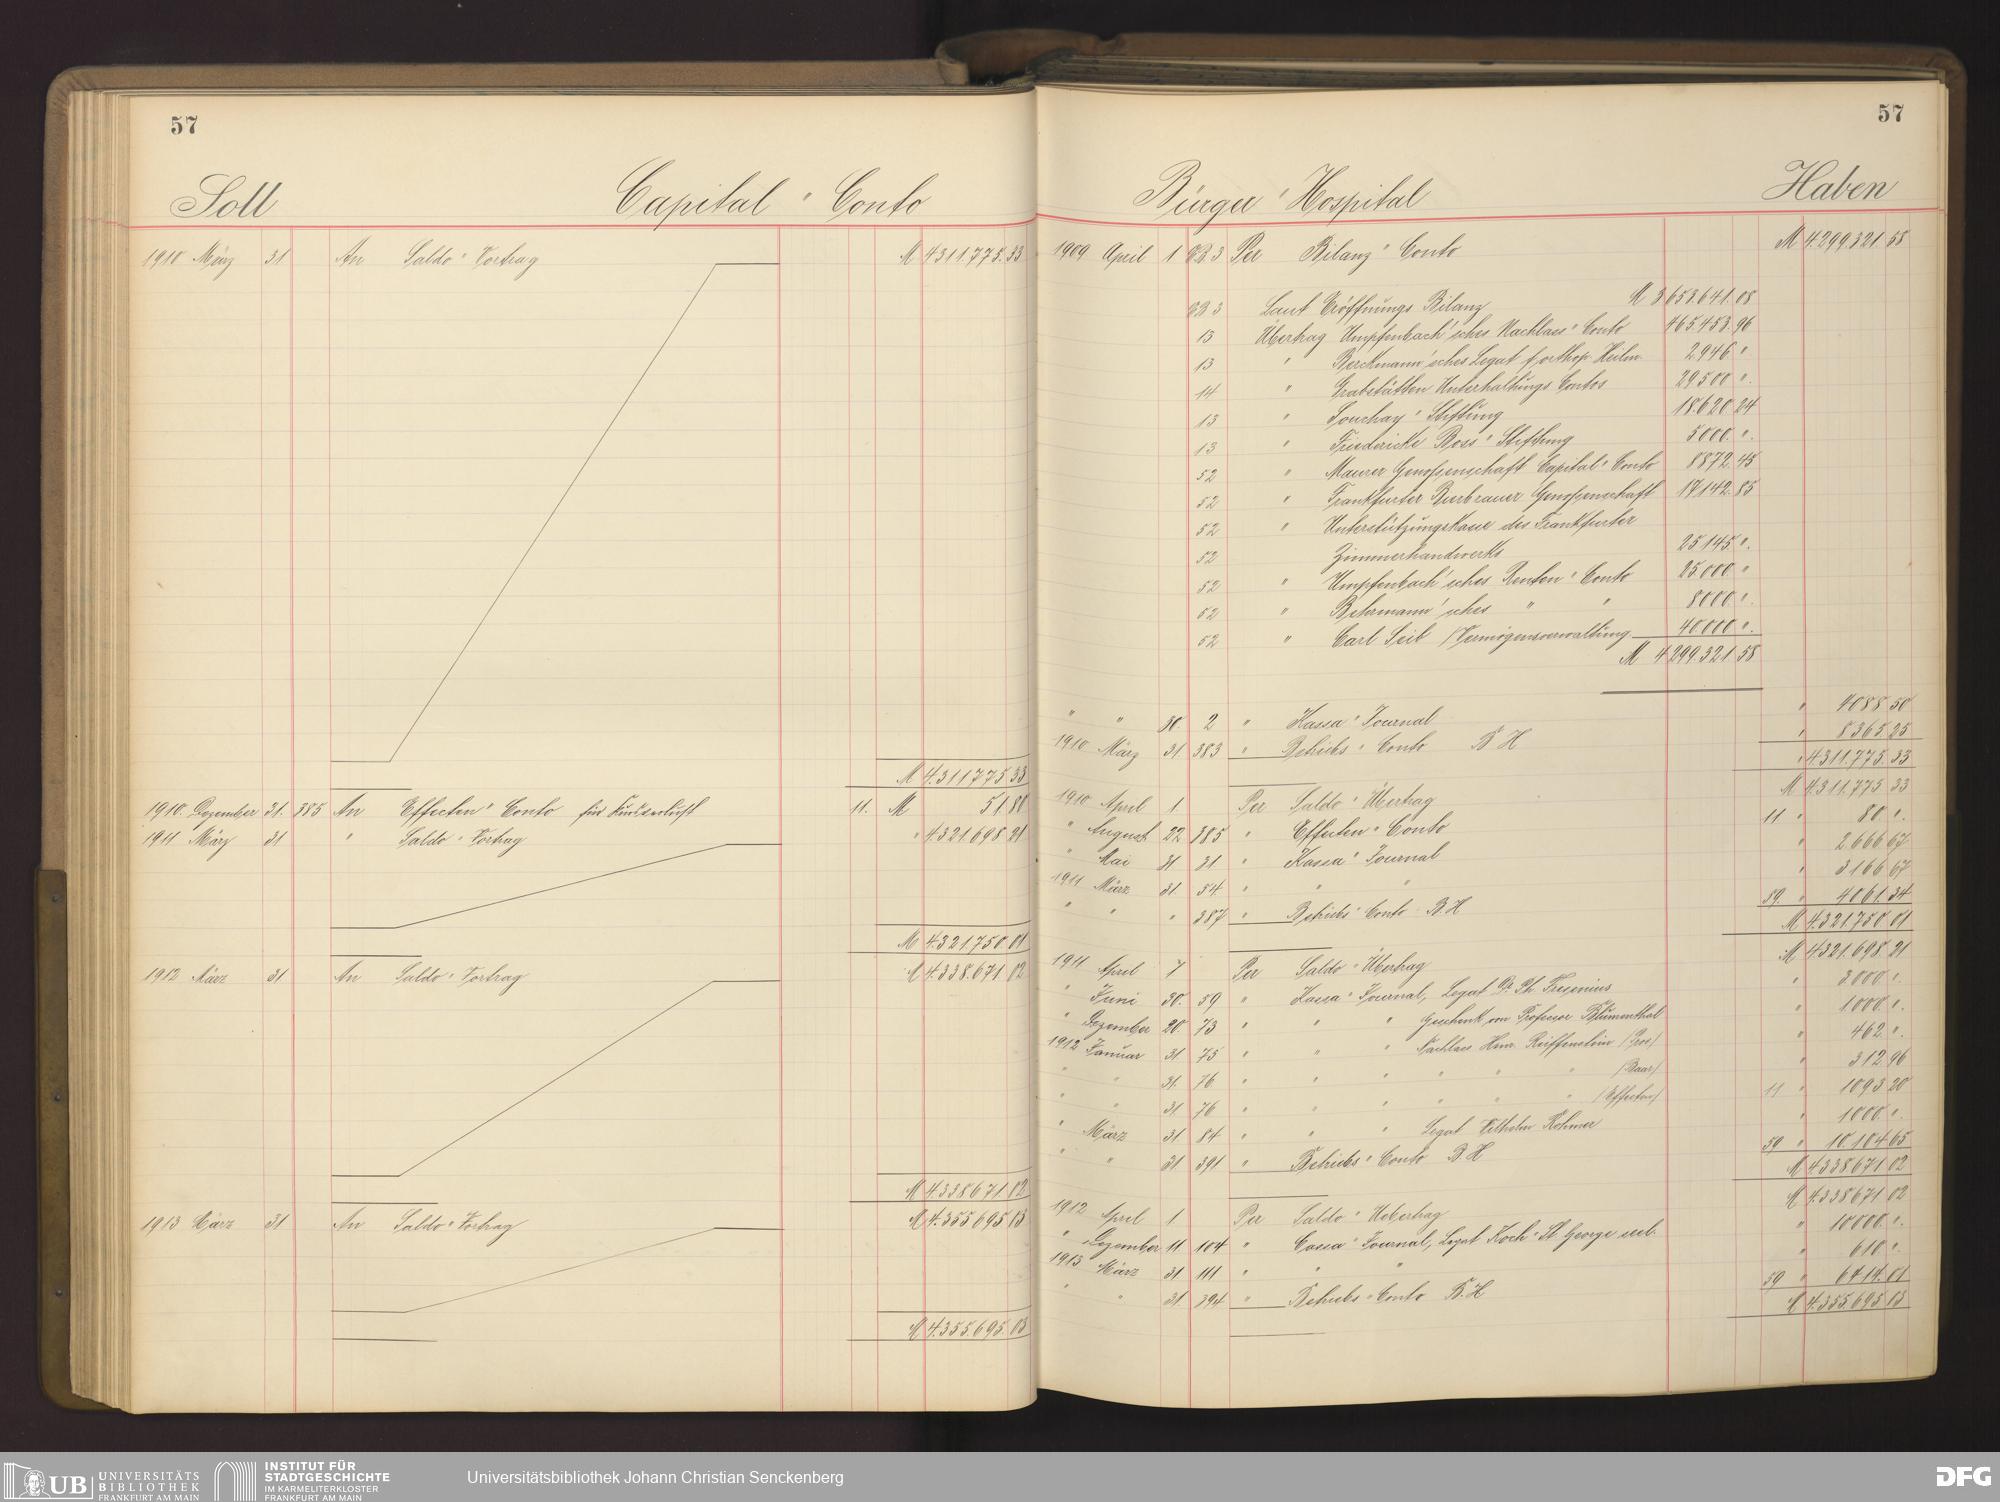 57
Soll Capital " Conto
1910 März 31 An Saldo " Vortrag M 4311.775.33
M 4.311775 33
1910. Dezember 31. 385 An Effecten " Conto für Kursverlust 11. M 51.80
1911 März 31 " Saldo " Vortrag " 4.321.698 21
M 4.321.750.01
1912 März 31 An Saldo " Vortrag M 4.338.671.02
M 4.338671.02
1913 März 31 An Saldo " Vortrag M 4.355695 03
M 4.355.695.03
57
Bürger " Hospital Haben
1909 April 1 B.B. 3 Per Bilanz " Conto M 4.299.321 58
B.B. 3 Laut Eröffnungs Bilanz M 3653.641.08
13 Übertrag Umpfenbach'sches Nachlass " Conto 465.453.96
13 " Berckmann'sches Legat f. orthop. Heilm. 2946 ".
14 " Grabstätten Unterhaltungs Contos 29500 ".
13 " Souchay " Stiftung 18.620.24
13 " Friedericke Boss " Stiftung 5000 ".
52 " Maurer Genossenschaft Capital " Conto 8872.45
52 " Frankfurter Bierbrauer Genossenschaft 17142.85
52 " Unterstützungskasse des Frankfurter
52 Zimmerhandwerks 25145 ".
52 " Umpfenbach'sches Renten " Conto 25.000 "
52 " Behrmann'sches " " 8000 ".
52 " Carl Seib /Vermögensverwaltung 40000 ".
M 4.299.321.58
" " 30. 2 " Kassa " Journal " 4088.50
1910 März 31 383 " Betriebs " Conto B H " 8365.25
" 4.311.775.33
1910 April 1 Per Saldo " Übertrag M 4.311.775 33
" August 22 385 " Effecten " Conto 11 " 80 ".
" Mai 31 31 " Kassa " Journal " 2666.67
1911 März 31 54 " " " " 3166 67
" " " 387 " Betriebs " Conto B. H 59. " 4061.34
M 4.321.750.01
1911 April 1 Per Saldo " Übertrag M 4.321.698.21
" Juni 30. 59 " Kassa " Journal, Legat Dr. Ph. Fresenius " 3.000 ".
" Dezember 20 73 " " " Geschenk von Professor Blumenthal " 1000 ".
1912 Januar 31 75 " " " Nachlass Henr. Reiffenstein " 462 ".
" " 31. 76 " " " " " " /Baar/ " 312.96
" " 31 76 " " " " " " /Effecten/ 11 " 1093 20
" März 31 84 " " " Legat Wilhelm Rehmer " 1000 ".
" " 31 391 " Betriebs " Conto B. H 59 " 10.104 65
M 4.338671 02
1912 April 1. Per Saldo " Uebertrag M 4.338671 02
" Dezember 11 104 " Cassa " Journal, Legat Koch " St. George " 10000 ".
1913 März 31 111 " " " " 610 ".
" " 31 394 " Betriebs " Conto B. H 59 " 6414.01
M 4.355.695.03
UB UNIVERSITÄTS
BIBLIOTHEK
FRANKFURT AM MAIN
INSTITUT FÜR
STADTGESCHICHTE
IM KARMELITERKLOSTER
FRANKFURT AM MAIN
Universitätsbibliothek Johann Christian Senckenberg
DFG